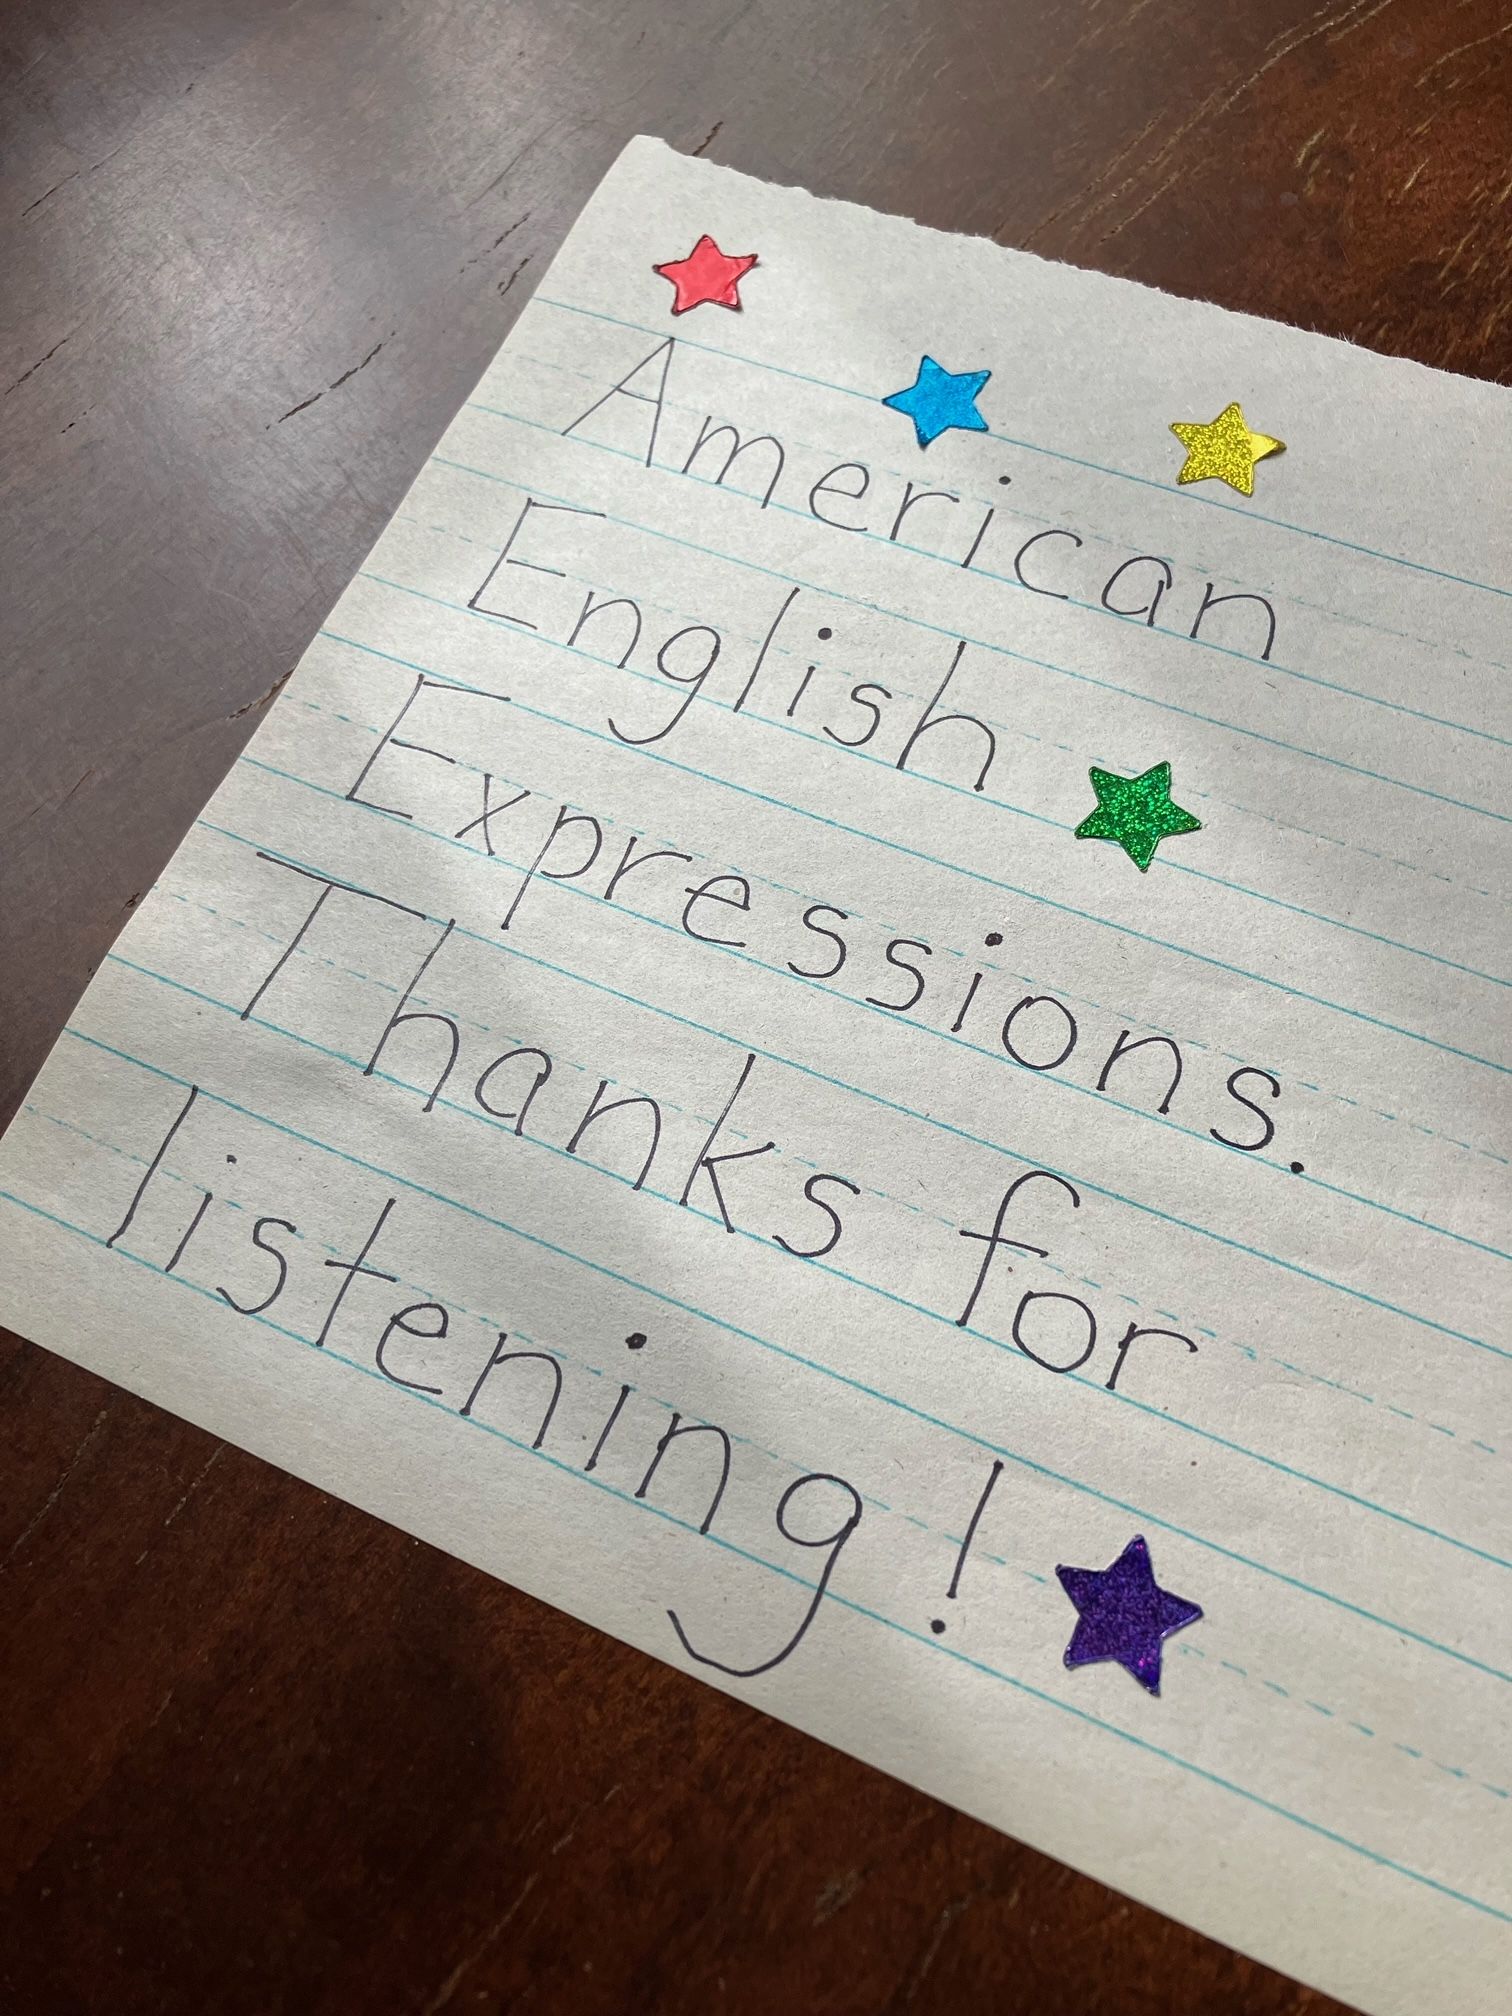 American
English
Expressions.
Thanks for
listening!